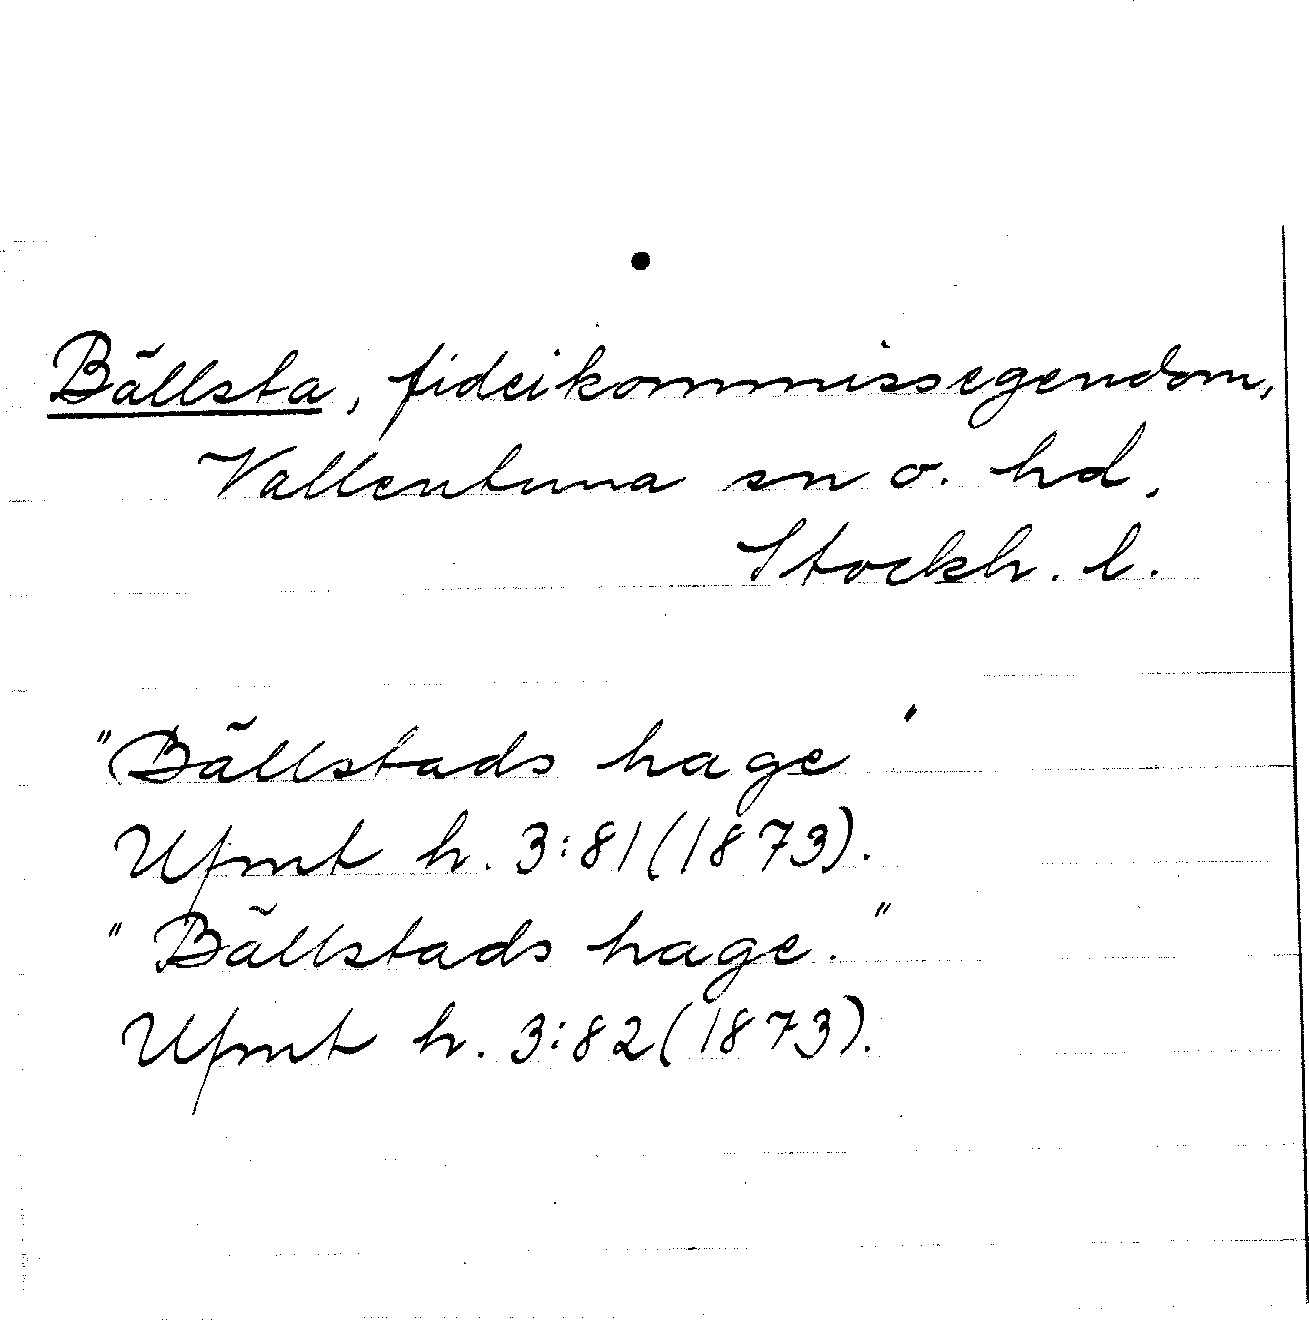 Bällsta, fideikommissegendom,
Vallentuna sn o. hd,
Stockh. l.
"Bällstads hage"
Ufmt h. 3:81 (1873).
"Bällstads hage."
Ufmt h. 3:82 (1873).